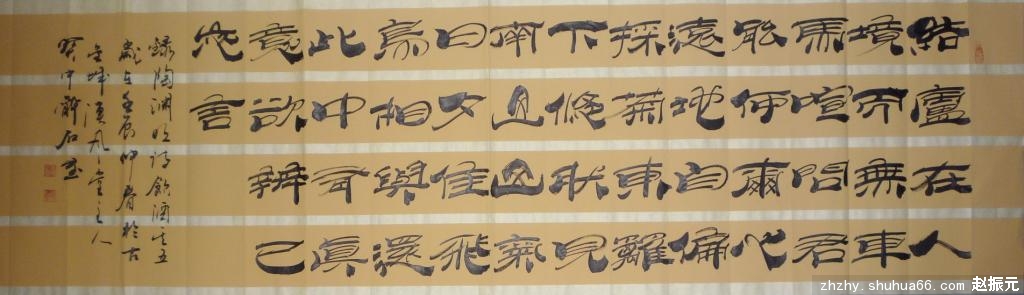 結廬在人
境而無車
馬喧問君
能何爾心
遠地自偏
採菊東籬
下悠然見
南山山氣
日夕佳飛
鳥相與還
此中有真
意欲辨已
忘言
錄陶淵明詩飲酒其五
歲在壬辰仲春於古
漢風堂主人
石
zhzhy.shuhua66.com 赵振元